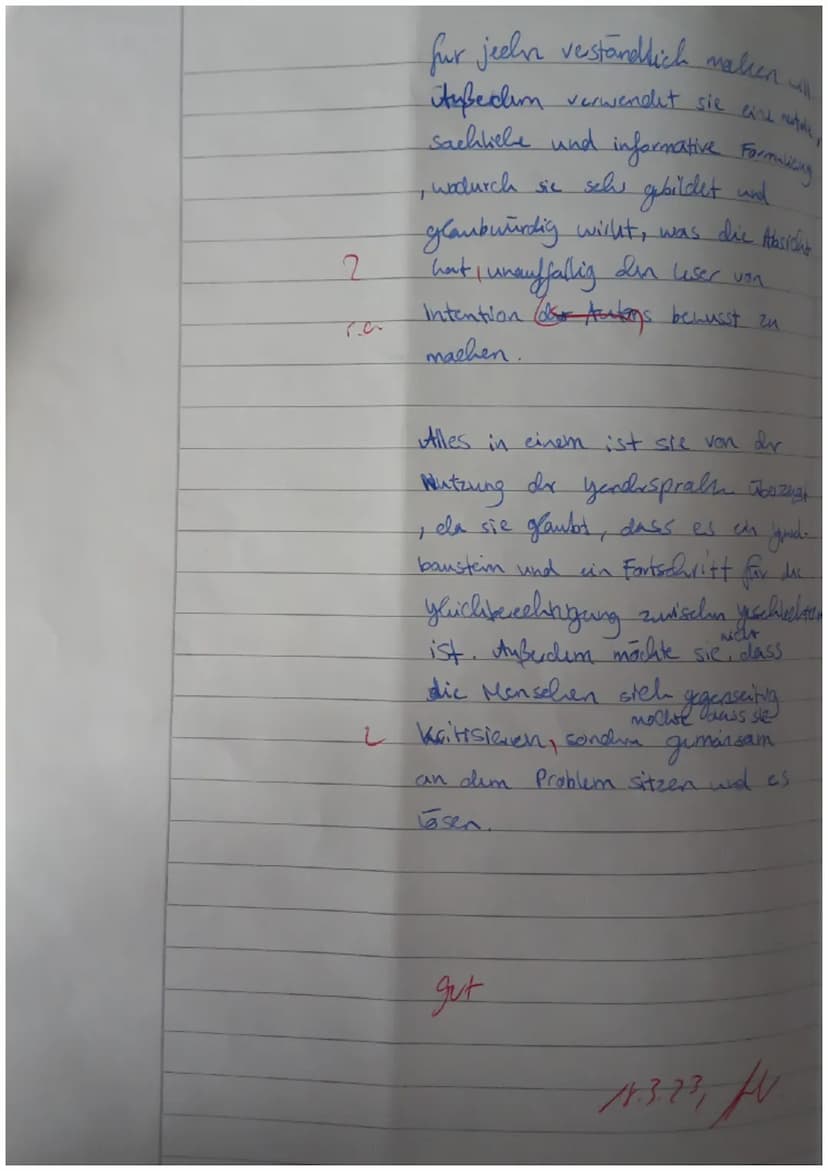 für jeden verständlich machen will
Außerdem verwendet sie eine
sachliche und informative Formulierung
, wodurch sie sehr gebildet und
glaubwürdig wirkt, was die Absicht
hat, unauffällig den Leser von
Intention des Autors bewusst zu
machen.
Alles in einem ist sie von der
Nutzung der Gendersprache überzeugt
, da sie glaubt, dass es ein Grund-
baustein und ein Fortschritt für die
gleichberechtigung zwischen geschlechtern
ist. Außerdem möchte sie nicht, dass
die Menschen sich gegenseitig
kritisieren, sondern möchte dass sie gemeinsam
an dem Problem sitzen und es
lösen.
gut